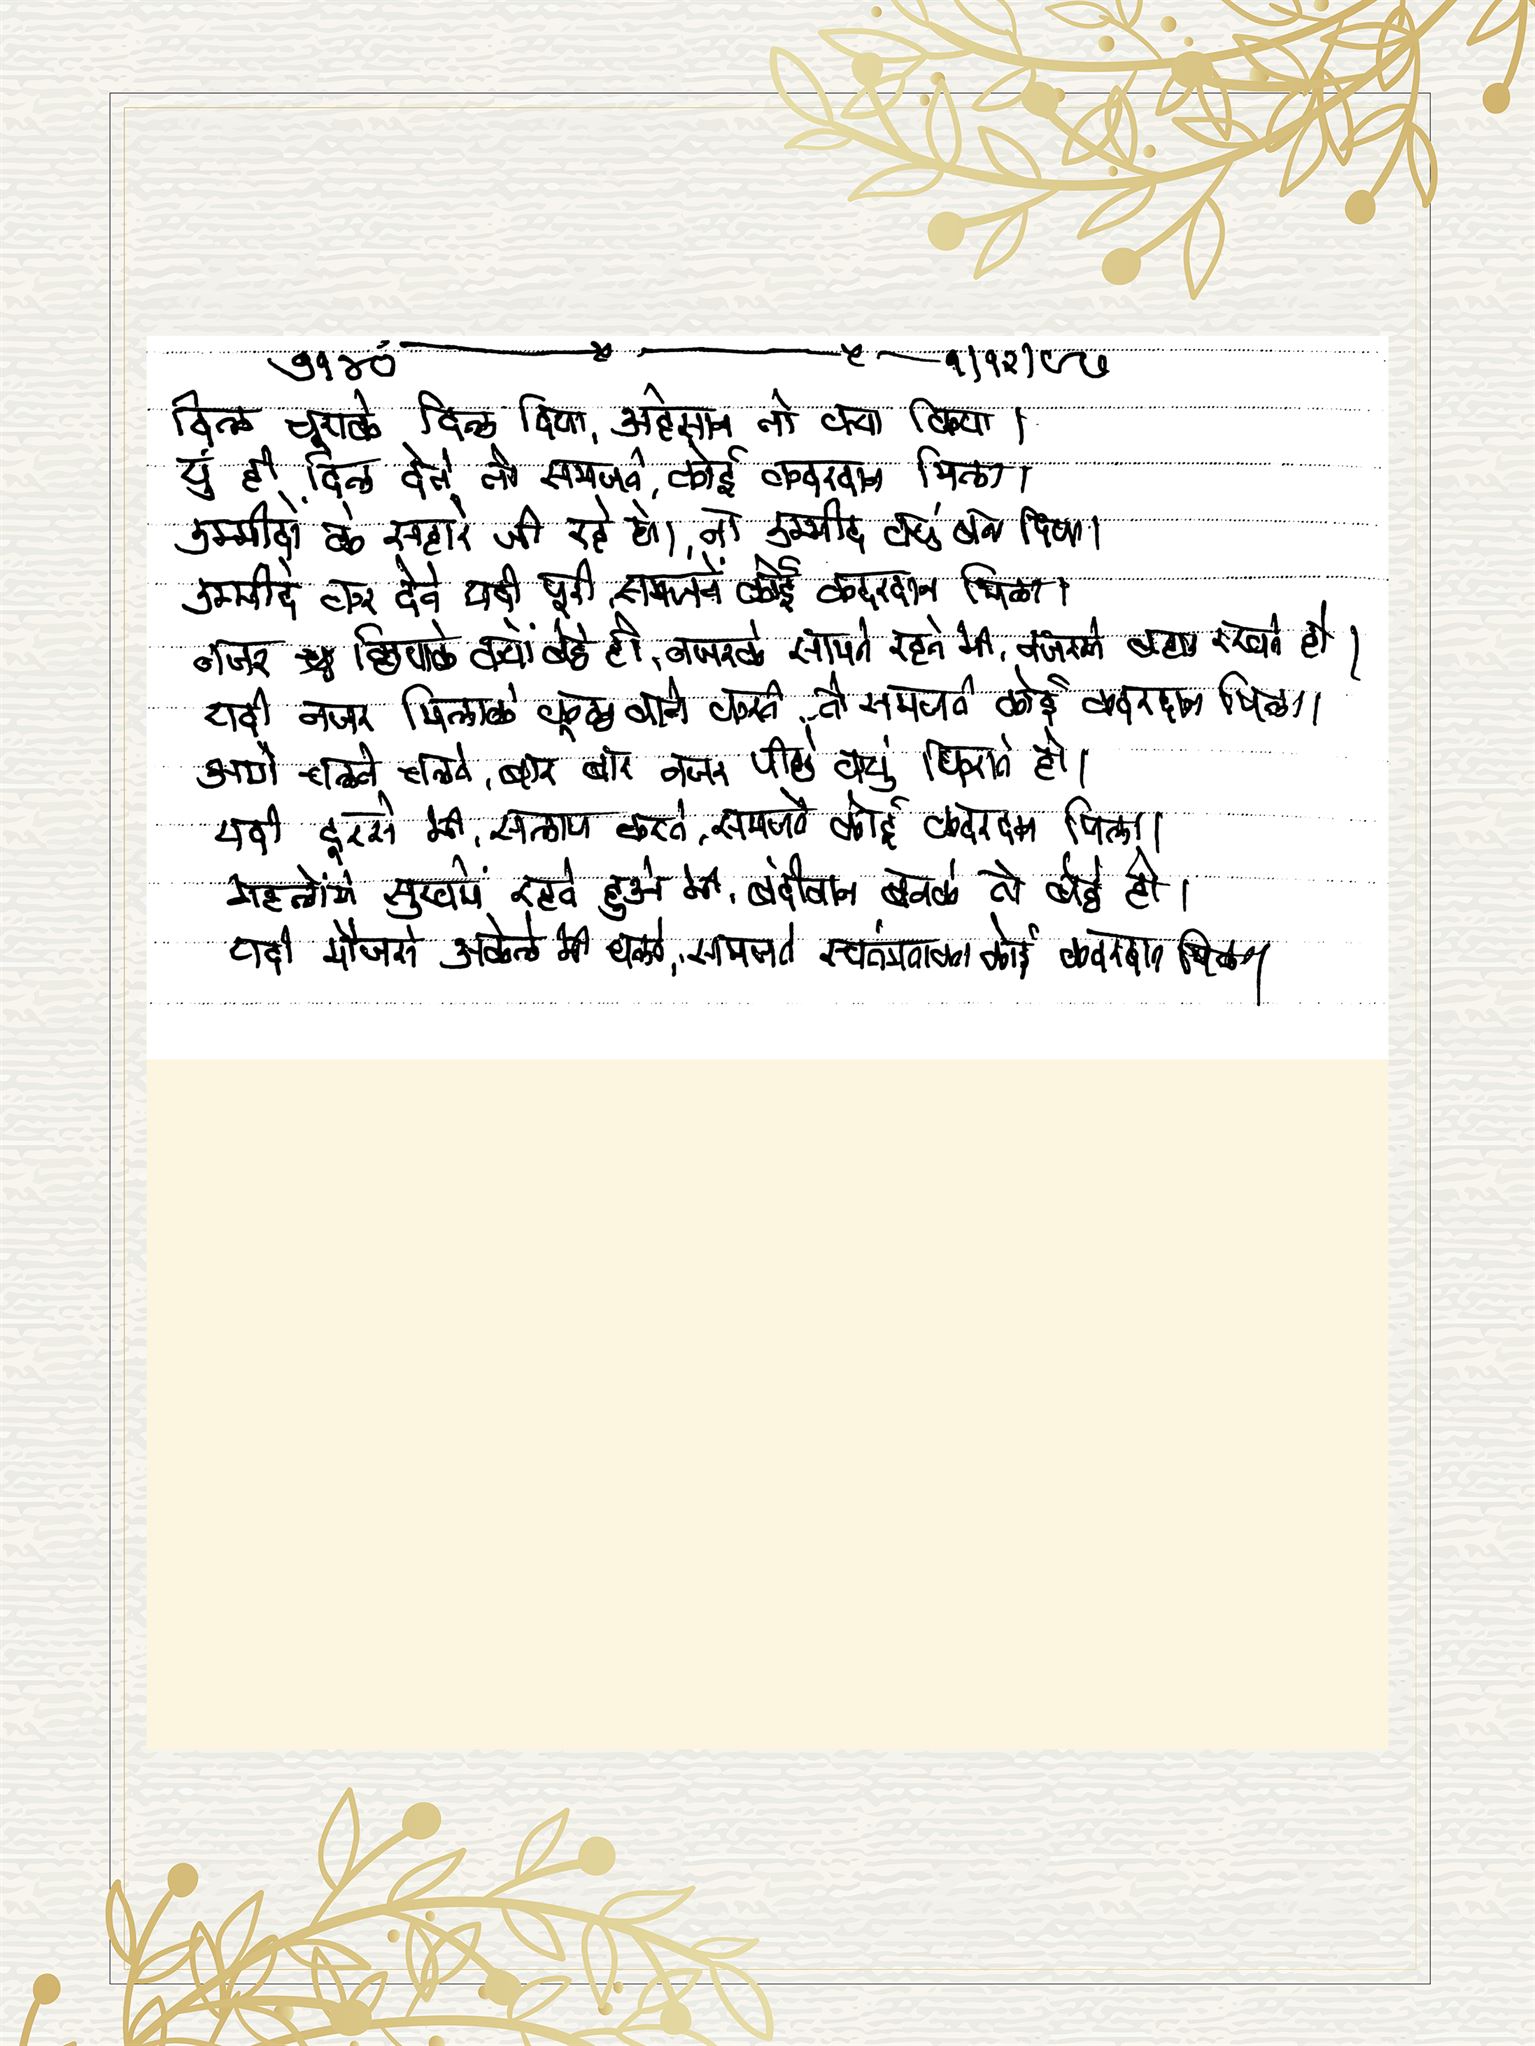 ७१४० ——x————x——१/१२/८७
दिल चूराके दिल दिया, अहेसान तो क्या किया।
युं ही दिल देते तो समजते, कोई कदरदान मिला।
उम्मीदों के सहारे जी रहे थे।, तो उम्मीद क्युं बन दिया।
उम्मीदे कर देते यदी पूरी, समजते कोई कदरदान मिला।
नजर छिपाके क्यों बैठे हो, नजरके सामने रहते भी, नजरसे बहार रखते हो।
यदी नजर मिलाके कुछ बाते करते, तो समजते कोई कदरदान मिला।
आगे चलते चलते, बार बार नजर पीछे क्युं फिराते हो।
यदी दूरसे भी, सलाम करते, समजते कोई कदरदान मिला।
महलोंमें सुखमें रहते हुओ भी, बंदीवान बनके तो बैठे हो।
यदी मौजसे अकेले भी चलते, समजते स्वतंत्रताका कोई कदरदान मिला।